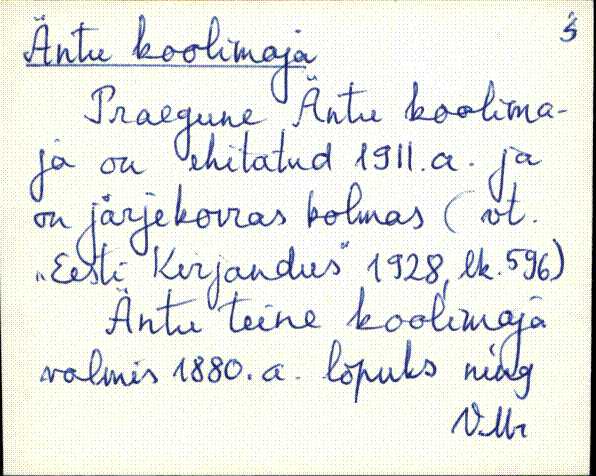 Äntu koolimaja
Praegune Äntu koolima-
ja on ehitatud 1911. a. ja
on järjekorras kolmas (vt.
„Eesti Kirjandus" 1928, lk. 596)
Äntu teine koolimaja
valmis 1880. a. lõpuks ning